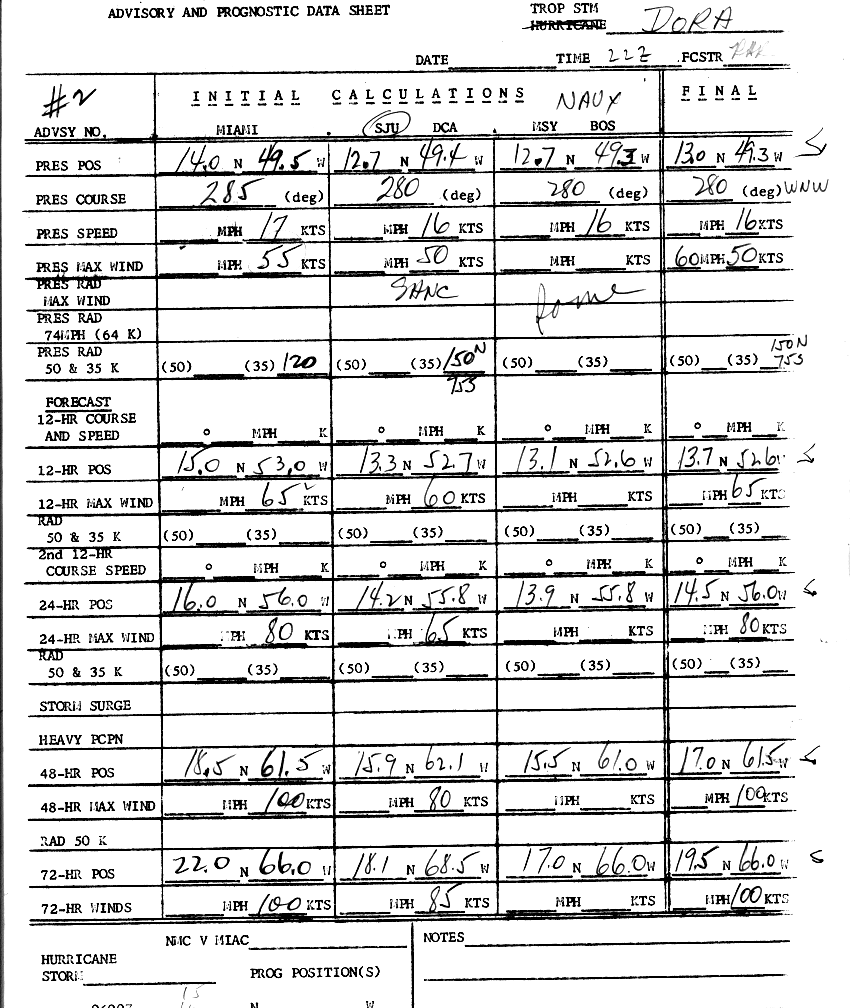 ADVISORY AND PROGNOSTIC DATA SHEET
TROP STM
HURRICANE DORA
DATE TIME 22Z FCSTR
#2 INITIAL CALCULATIONS NAVY FINAL
ADVSY NO. MIAMI SJU DCA MSY BOS
PRES POS 14.0 N 49.5 W 12.7 N 49.4 W 12.7 N 49.3 W 13.0 N 49.3 W
PRES COURSE 285 (deg) 280 (deg) 280 (deg) 280 (deg) WNW
PRES SPEED MPH 17 KTS MPH 16 KTS MPH 16 KTS MPH 16 KTS
PRES MAX WIND MPH 55 KTS MPH 50 KTS MPH KTS 60 MPH 50 KTS
PRES RAD
MAX WIND SANC
PRES RAD
74MPH (64 K)
PRES RAD 150N
50 & 35 K (50) (35) 120 (50) (35) 150N (50) (35) (50) (35) 75S
75S
FORECAST
12-HR COURSE
AND SPEED ° MPH K ° MPH K ° MPH K ° MPH K
12-HR POS 15.0 N 53.0 W 13.3 N 52.7 W 13.1 N 52.6 W 13.7 N 52.6 W
12-HR MAX WIND MPH 65 KTS MPH 60 KTS MPH KTS MPH 65 KTS
RAD
50 & 35 K (50) (35) (50) (35) (50) (35) (50) (35)
2nd 12-HR
COURSE SPEED ° MPH K ° MPH K ° MPH K ° MPH K
24-HR POS 16.0 N 56.0 W 14.2 N 55.8 W 13.9 N 55.8 W 14.5 N 56.0 W
24-HR MAX WIND MPH 80 KTS MPH 65 KTS MPH KTS MPH 80 KTS
RAD
50 & 35 K (50) (35) (50) (35) (50) (35) (50) (35)
STORM SURGE
HEAVY PCPN
48-HR POS 18.5 N 61.5 W 15.9 N 62.1 W 15.5 N 61.0 W 17.0 N 61.5 W
48-HR MAX WIND MPH 100 KTS MPH 80 KTS MPH KTS MPH 100 KTS
RAD 50 K
72-HR POS 22.0 N 66.0 W 18.1 N 68.5 W 17.0 N 66.0 W 19.5 N 66.0 W
72-HR WINDS MPH 100 KTS MPH 85 KTS MPH KTS MPH 100 KTS
NMC V MIAC NOTES
HURRICANE
STORM PROG POSITION(S)
15
N W